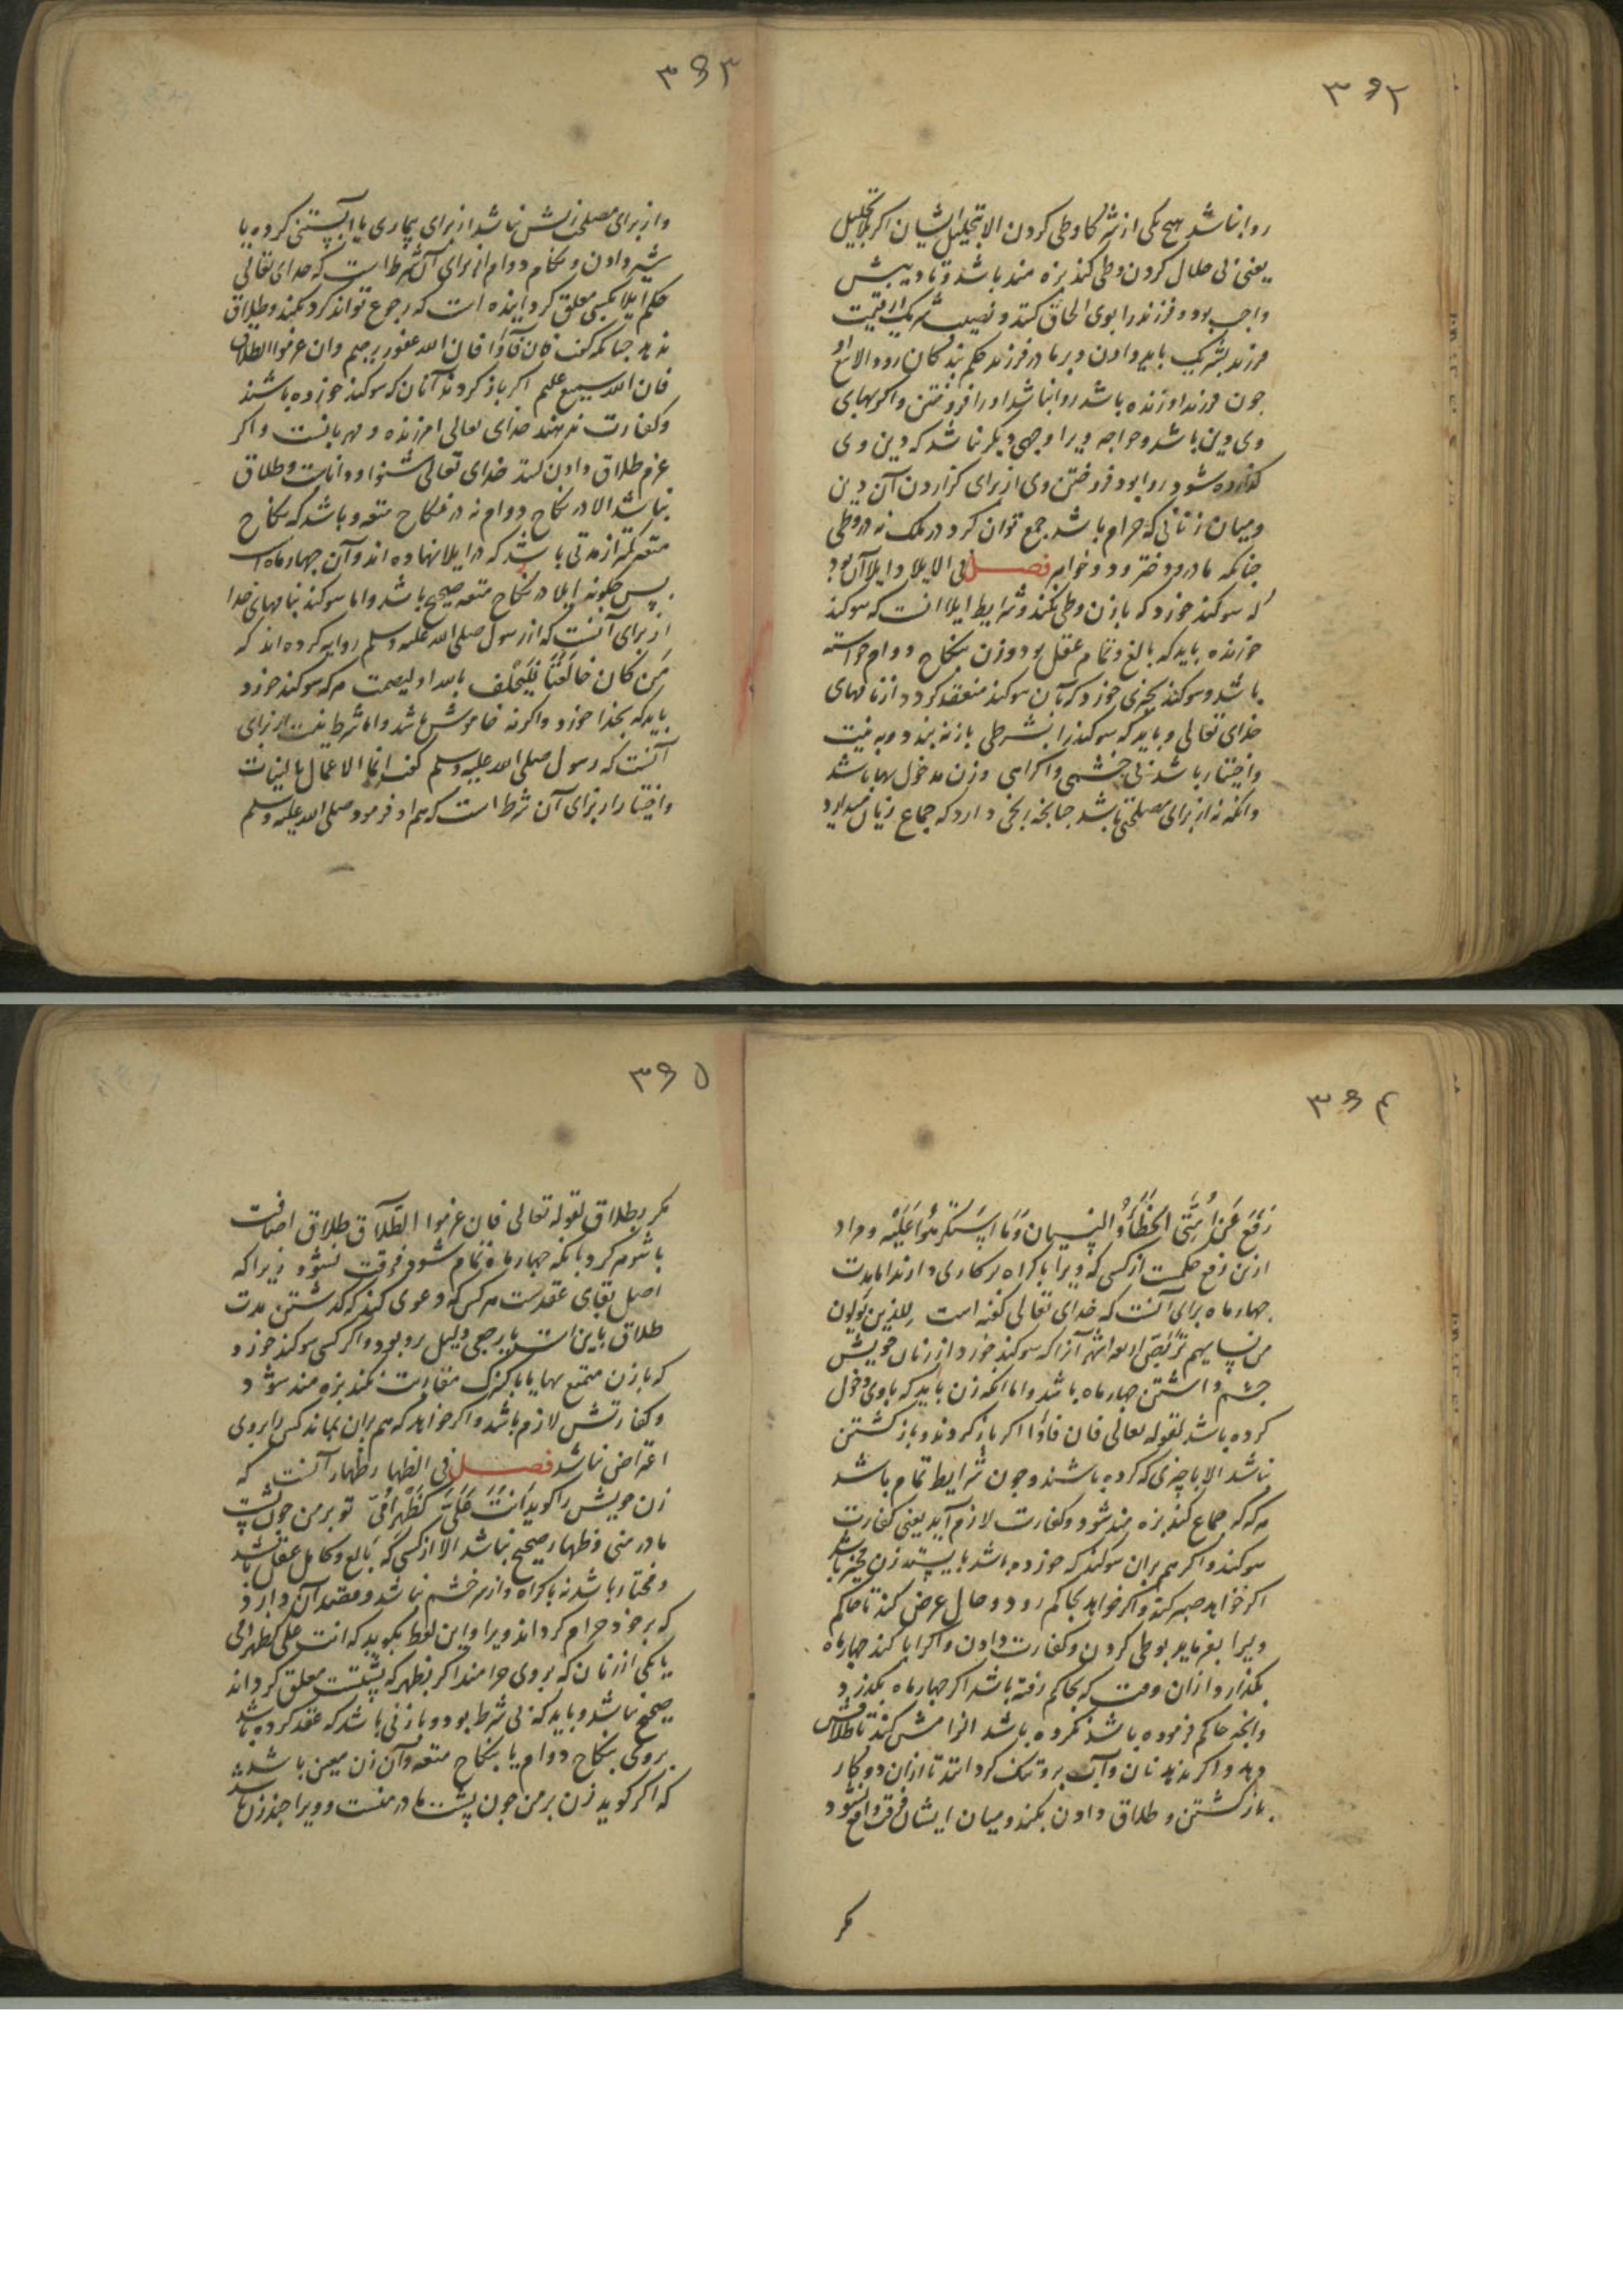 ۳۹۲
روا نباشد هیچ یکی از شرکا وطی کردن الا بتحلیل ایشان اکر بلا تحلیل
یعنی بی حلال کردن وطی کند بزه مند باشد و تادیبش
واجب بود و فرزند را بوی الحاق کنند و نصیب شریک از قیمت
فرزند بشریک باید دادن و بر مادر فرزند حکم بندکان رود الا
چون فرزند او زنده باشد روا نباشد او را فروختن و اکر بهای
وی دین باشد و خواجه ویرا وجهی دیکر نباشد که دین وی
کزارده شود روا بود فروختن وی از برای کزاردن آن دین
و میان زنانی که حرام باشد جمع توان کرد در ملک نه در وطی
چنانکه مادر و دختر و دو خواهر فصل فی الایلا و ایلا آن بود
که سوکند خورد که با زن وطی نکند و شرایط ایلا انست که سوکند
خورنده باید که بالغ و تمام عقل بود و زن بنکاح دوام خواسته
باشد و سوکند بچیزی خورد که بآن سوکند منعقد کردد از نامهای
خدای تعالی و باید که سوکند را بشرطی باز نه بندد و به نیت
و اختیار باشد بی خشمی و اکراهی و زن مدخول بها باشد
وانکه نه از برای مصلحتی باشد چنانچه رنجی دارد که جماع زیان میدارد
۳۹۳
و از برای مصلحت زنش نباشد از برای بیماری یا آبستنی کرده یا
شیر دادن و نکاح دوام از برای آن شرط است که خدای تعالی
حکم ایلا بکسی معلق کردانیده است که رجوع تواند کرد نکند و طلاق
ندهد چنانکه کفت فان فآؤا فان الله غفور رحیم وان عزموا الطلاق
فان الله سمیع علیم اکر باز کردند آنان که سوکند خورده باشند
و کفارت بدهند خدای تعالی امرزنده و مهربانست و اکر
عزم طلاق دادن کنند خدای تعالی شنوا و داناست و طلاق
نباشد الا در نکاح دوام نه در نکاح متعه و باشد که نکاح
متعه کمتر از مدتی باشد که در ایلا نهاده اند و آن چهار ماه است
پس چکونه ایلا در نکاح متعه صحیح باشد و اما سوکند بنامهای خدا
از برای آنست که از رسول صلی الله علیه وسلم روایه کرده اند که
مَن کان حَالِفًا فَلیَحْلِف بالله او لیصمت هر که سوکند خورد
باید که بخدا خورد واکرنه خاموش باشد و اما شرط نیت از برای
آنست که رسول صلی الله علیه وسلم کفت انما الاعمال بالنیات
و اختیار از برای آن شرط است که هم او فرمود صلی الله علیه وسلم
۳۹۴
رُفِعَ عَن اُمَّتِی الخَطَأُ وَ النِسیان وَمَا اسْتُکْرِهُوا عَلَیْه و مراد
ازین رفع حکمست از کسی که ویرا باکراه بر کاری دارند اما مدت
چهار ماه برای آنست که خدای تعالی کفته است لِلذین یُولون
من نسایهم تَرَبُّصُ اربعة اشهر آنرا که سوکند خورد از زنان خویش
چشم داشتن چهار ماه باشد و اما انکه زن باید که با وی دخول
کرده باشد لقوله تعالی فان فاؤا اکر باز کردند و باز کشتن
نباشد الا با چیزی که کرده باشند و چون شرایط تمام باشد
هر که که جماع کند بزه مند شود و کفارت لازم آید یعنی کفارت
سوکند و اکر هم بران سوکند که خورده باشد بایستد زن مخیر باشد
اکر خواهد صبر کند و اکر خواهد بحاکم رود و حال عرض کند تا حاکم
ویرا بفرماید بوطی کردن و کفارت دادن و اکر ابا کند چهار ماه
بکذارد از ان وقت که بحاکم رفته باشد اکر چهار ماه بکذرد
و انچه حاکم فرموده باشد نکرده باشد الزامش کند تا طلاقش
دهد و اکر ندهد نان و آب برو تنک کردانند تا از ان دو کار
باز کشتن و طلاق دادن بکند و میان ایشان فرقت واقع نشود
مکر
۳۹۵
مکر بطلاق لقوله تعالی فان عزموا الطَّلَاق طلاق اضافت
با شوهر کرد بانکه چهار ماه تمام شود فرقت نشود زیرا که
اصل بقای عقدست هر کس که دعوی کند که کذشتن مدت
طلاق باین است یا رجعی دلیل برو بود و اکر کسی سوکند خورد
که با زن متمتع بها یا با کنیزک مقاربت نکند بزه مند شود
و کفارتش لازم باشد و اکر خواهد که هم بران بماند کس را بروی
اعتراض نباشد فصل فی الظهار ظهار آنست که
زن خویش را کوید اَنْتَ عَلَیَّ کَظَهْرِ اُمّی تو بر من چون پشت
مادر منی و ظهار صحیح نباشد الا از کسی که بالغ و کامل عقل باشد
و مختار باشد نه باکراه و از سر خشم نباشد و مقصد آن دارد
که بر خود حرام کرداند ویرا و این لفظ بکوید که انت علی کظهر امی
یا یکی از زنان که بروی حرامند اکر بظهر که پشتست معلق کرداند
صحیح نباشد و باید که بی شرط بود و با زنی باشد که عقد کرده باشد
بروی بنکاح دوام یا بنکاح متعه و آن زن معین باشد
که اکر کوید زن بر من چون پشت مادر منست و ویرا چند زن باشد